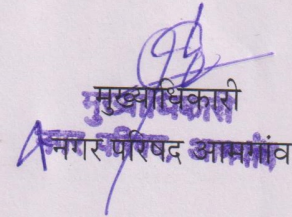 मुख्याधिकारी
नगर परिषद आमगांव